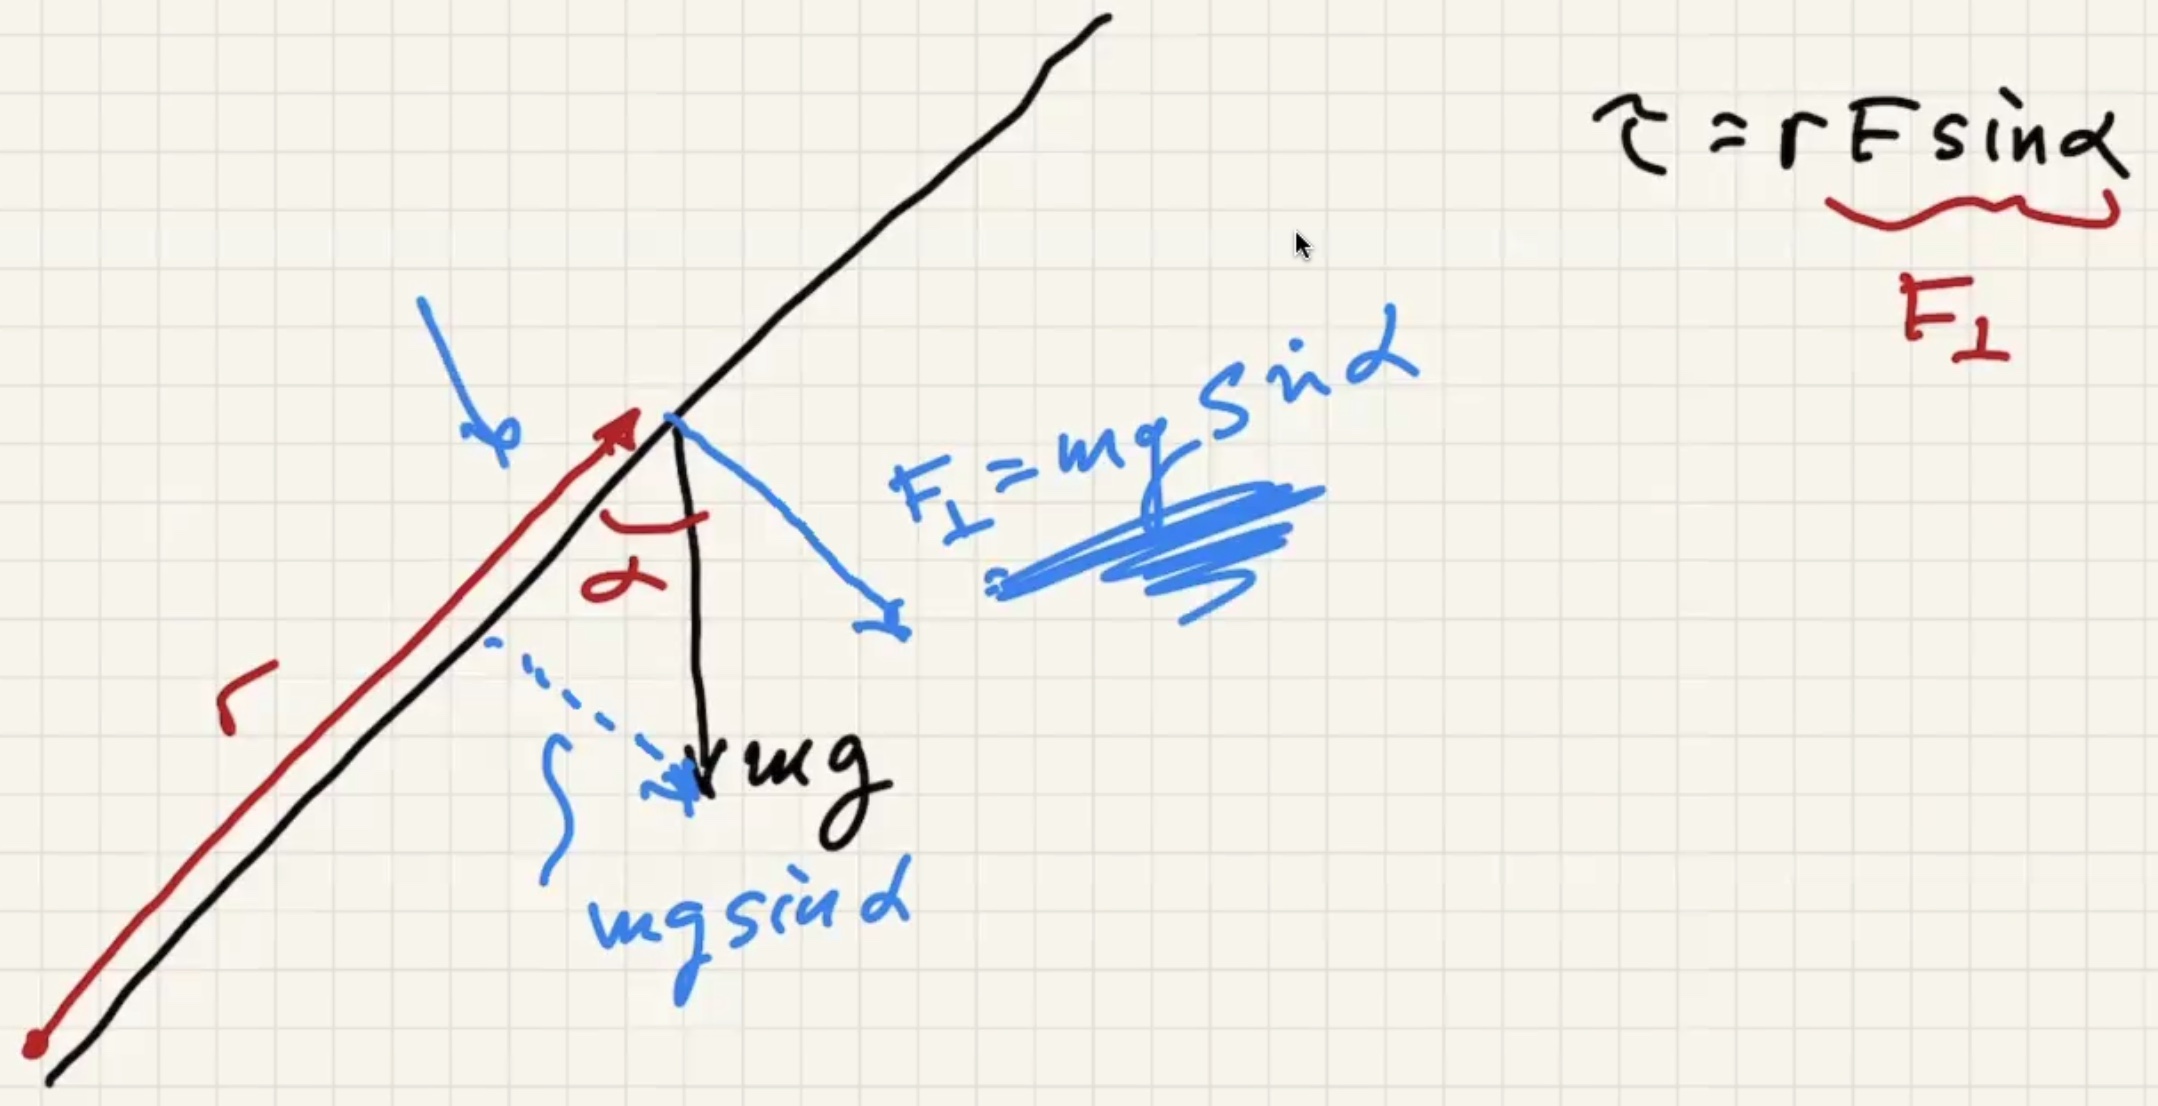 τ = r F sin α
F⊥
F⊥ = mg sin α
α
r
mg
mg sin α